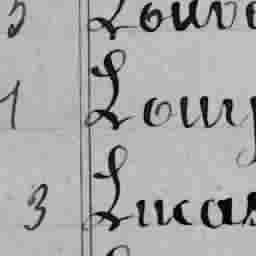 5 Louve
1 Louy
3 Lucas